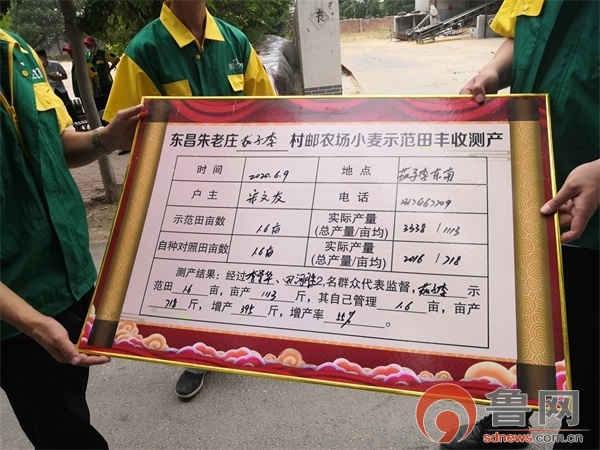 东昌朱老庄茄子李 村邮农场小麦示范田丰收测产
时间 2020.6.9 地点 茄子李东南
户主 宋文友 电话
示范田亩数 1.6亩 实际产量(总产量/亩均) 3338 / 1113
自种对照田亩数 1.6亩 实际产量(总产量/亩均) 2016 / 718
测产结果:经过 2名群众代表监督,茄子李 示
范田 1.6 亩,亩产 1113 斤,其自己管理 1.6 亩,亩产
718 斤,增产 395 斤,增产率 55% 。
鲁网
sdnews.com.cn